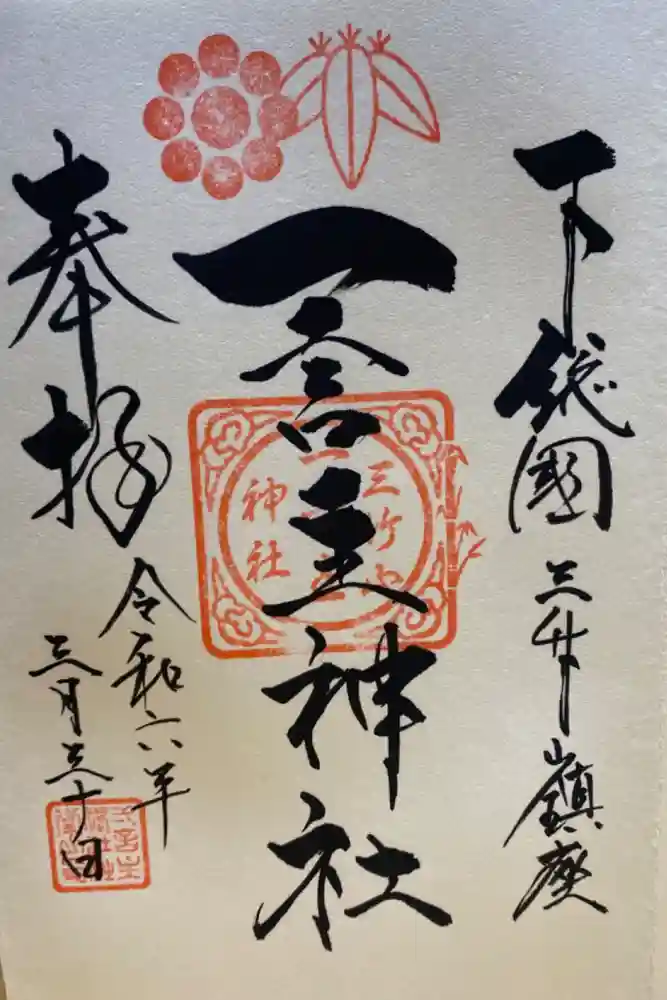 下総國三竹山鎮座
一言主神社
奉拝
令和六年
三月三十日
三竹山
神社